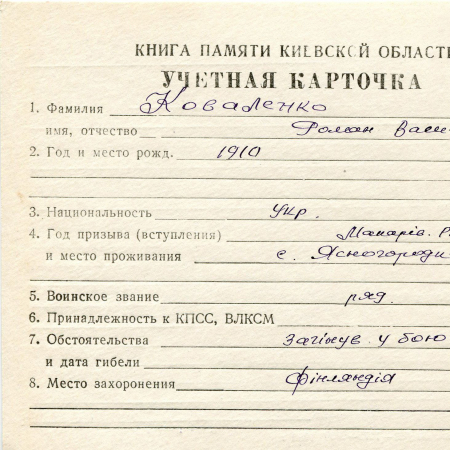 КНИГА ПАМЯТИ КИЕВСКОЙ ОБЛАСТ
УЧЕТНАЯ КАРТОЧКА
1. Фамилия Коваленко
имя, отчество Роман Васи
2. Год и место рожд. 1910
3. Национальность укр.
4. Год призыва (вступления) Макарів. Р
и место проживания с. Ясногородк
5. Воинское звание ряд.
6. Принадлежность к КПСС, ВЛКСМ
7. Обстоятельства загінув у бою
и дата гибели
8. Место захоронения Фінляндія